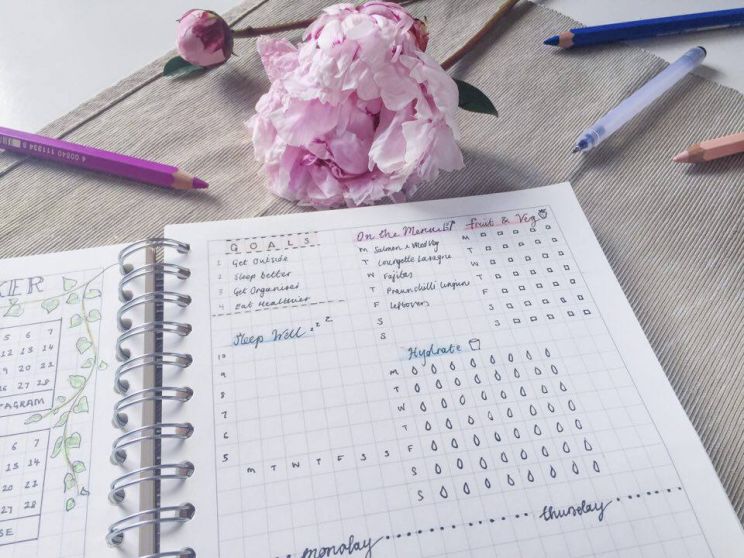 KER
5 6 7
12 13 14
9 20 21
27 28
TAGRAM
6 7
13 14
20 21
27 28
SE
GOALS
1 Get Outside
2 Sleep better
3 Get Organised
4 Eat Healthier
Sleep Well zzz
10
9
8
7
6
5
M T W T F S S
On the Menu
M Salmon &
T Courgette Lasagne
W Fajitas
T Prawn chilli linguin
F Leftovers
S
S
Fruit & Veg
M
T
W
T
F
S
S
Hydrate
M
T
W
T
F
S
S
monday
thursday